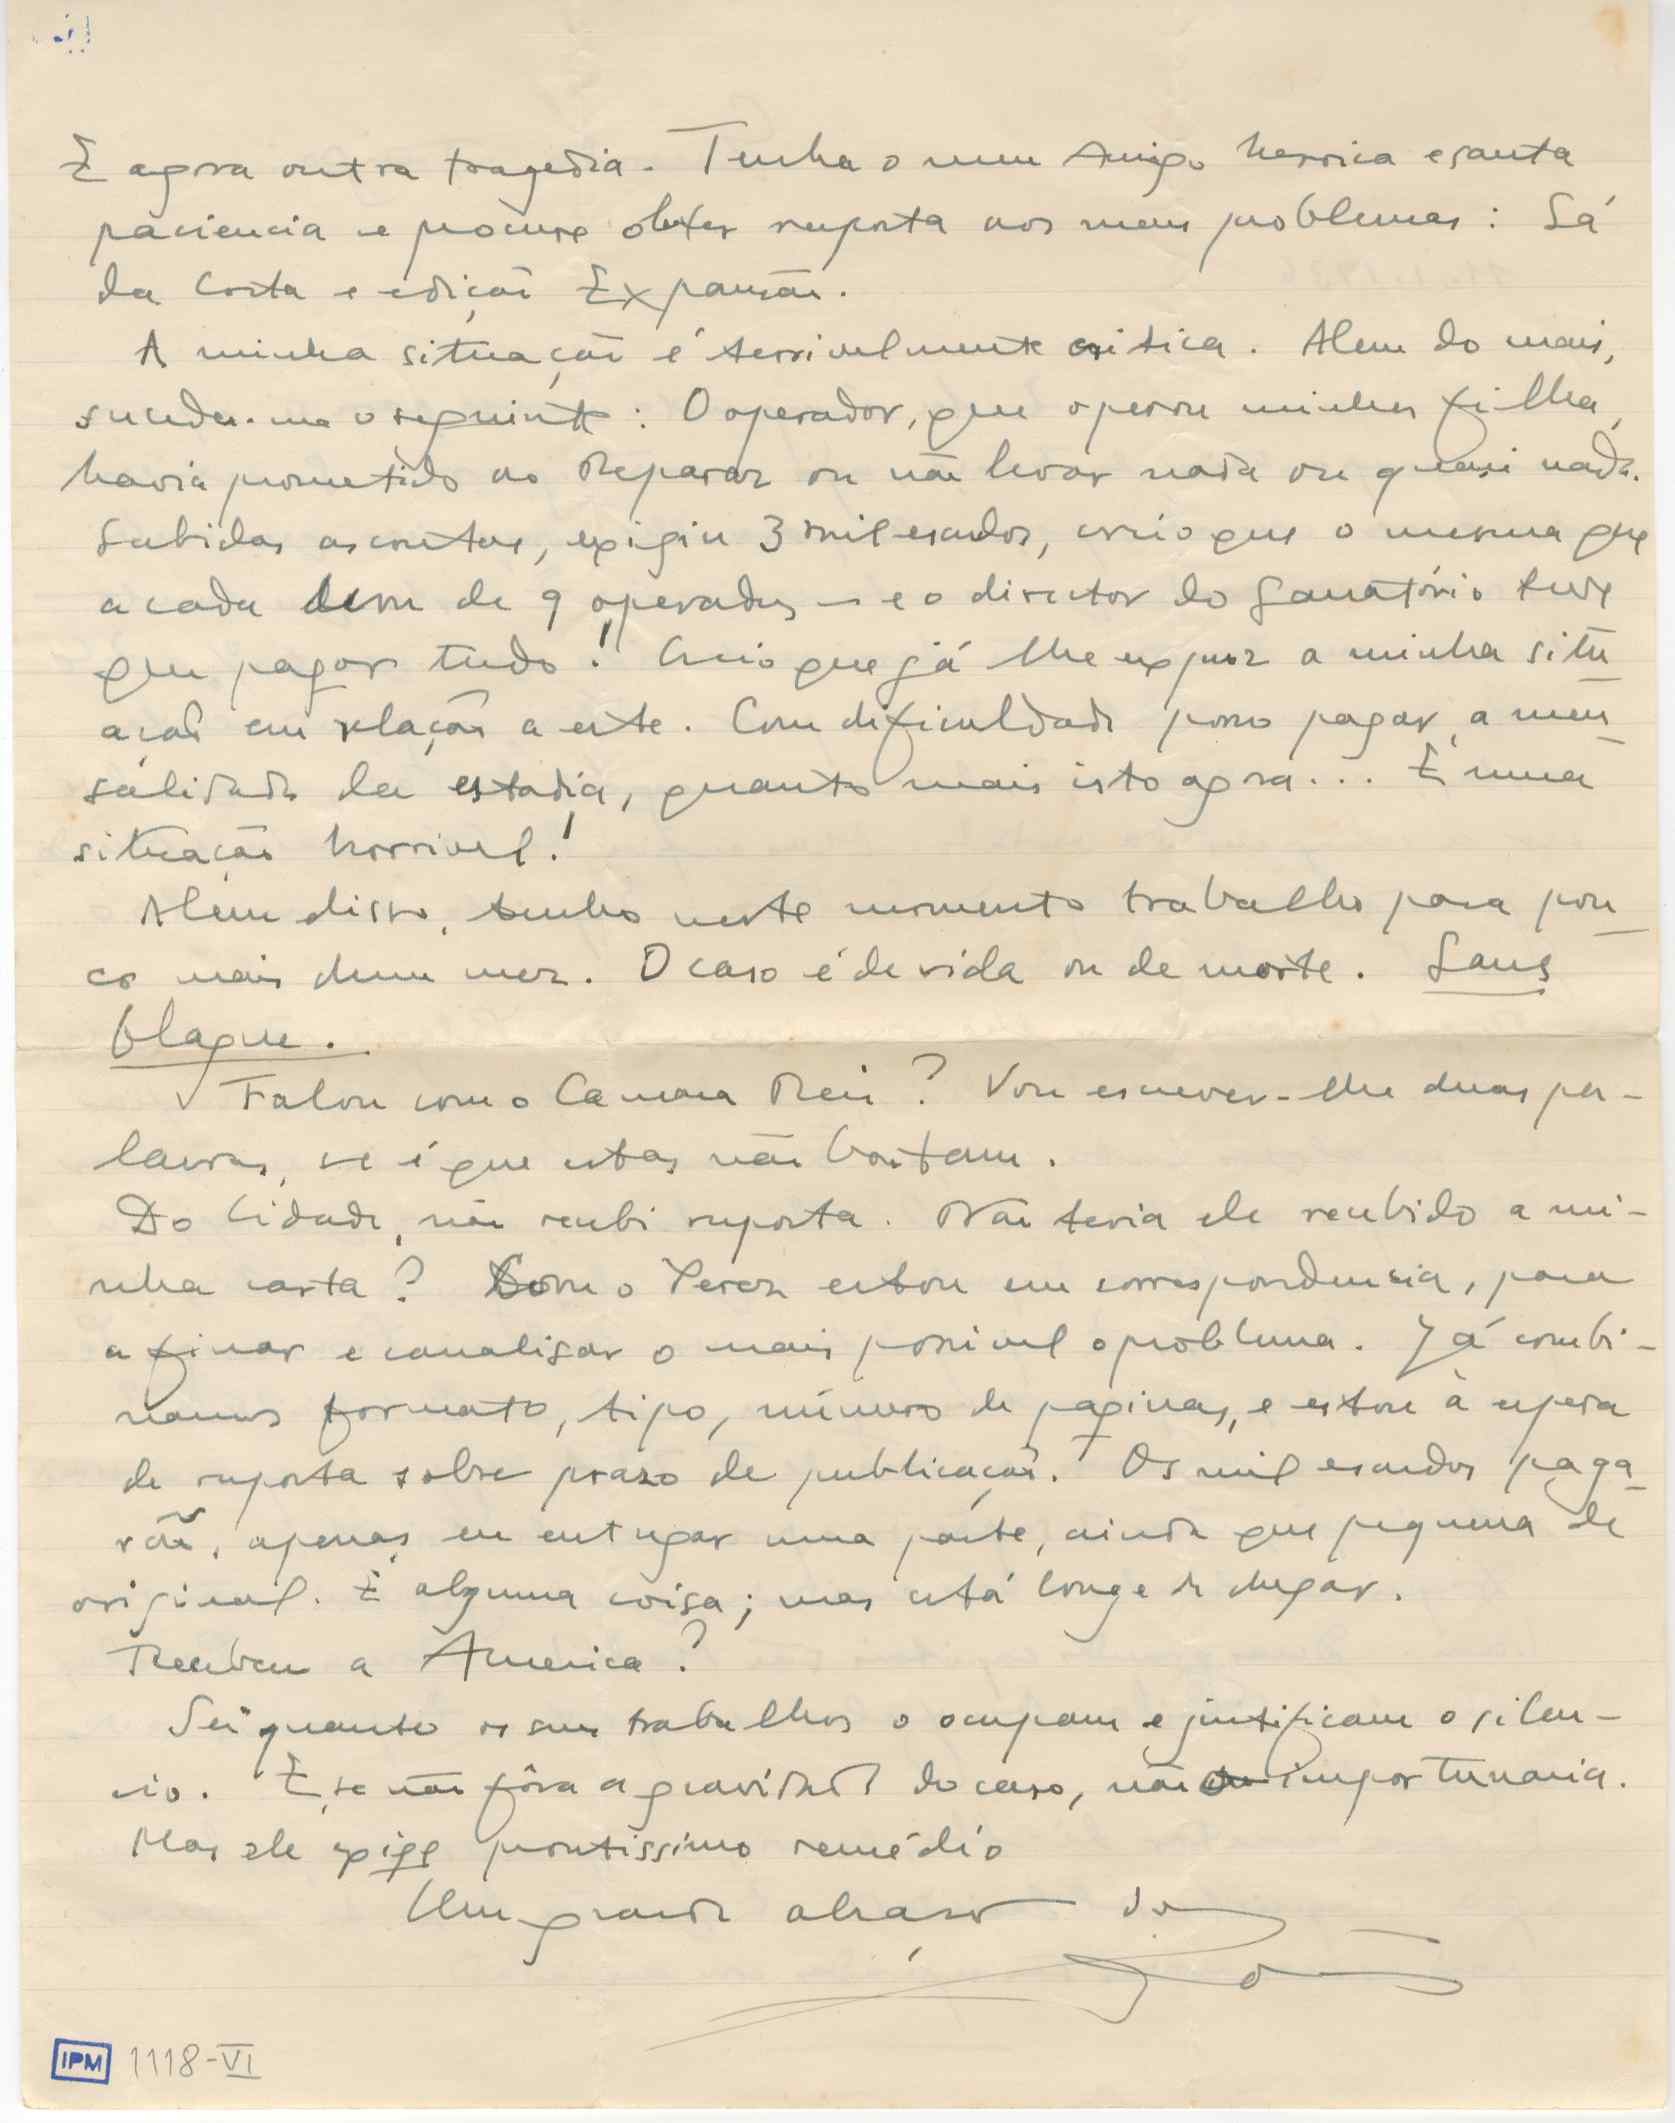 E agora outra tragedia. Tenha o meu Amigo heroica e santa
paciencia e procure obter resposta aos meus problemas: Sá
da Costa e edição Expansão.
A minha situação é terrivelmente critica. Alem do mais,
sucedeu-me o seguinte: O operador, que operou minha filha,
havia prometido ao Reparaz ou não levar nada ou quasi nada.
Subidas as contas, exigiu 3 mil escudos, creio que o mesmo que
a cada um de 9 operados — e o director do Sanatório teve
que pagar tudo! Creio que já lhe expuz a minha situ-
ação em relação a este. Com dificuldade posso pagar a men-
salidade da estadia, quanto mais isto agora... É uma
situação horrivel!
Alem disso, tenho neste momento trabalho para pou-
co mais dum mez. O caso é de vida ou de morte. Sans
blague.
Falou com o Camara Reis? Vou escrever-lhe duas pa-
lavras, se é que estas não bastam.
Do Cidade, não recebi resposta. Não teria ele recebido a mi-
nha carta? Com o Perez estou em correspondencia, para
afinar e canalisar o mais possivel o problema. Já combi-
namos formato, tipo, número de paginas, e estou à espera
de resposta sobre prazo de publicação. Os mil escudos paga-
rão, apenas eu entregar uma parte, ainda que pequena de
original. É alguma coisa; mas está longe de chegar.
Recebeu a America?
Sei quanto os seus trabalhos o ocupam e justificam o silen-
cio. E, se não fôra a gravidade do caso, não importunaria.
Mas ele exige prontissimo remédio
Um grande abraço do
IPM 1118-VI